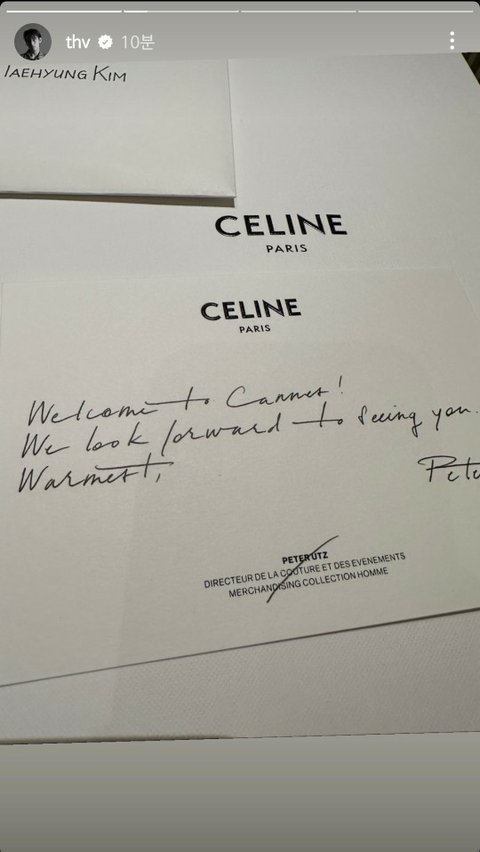 thv 10분
TAEHYUNG KIM
CELINE
PARIS
CELINE
PARIS
Welcome to Cannes!
We look forward to seeing you.
Warmest,
Pete
PETER UTZ
DIRECTEUR DE LA COUTURE ET DES EVENEMENTS
MERCHANDISING COLLECTION HOMME